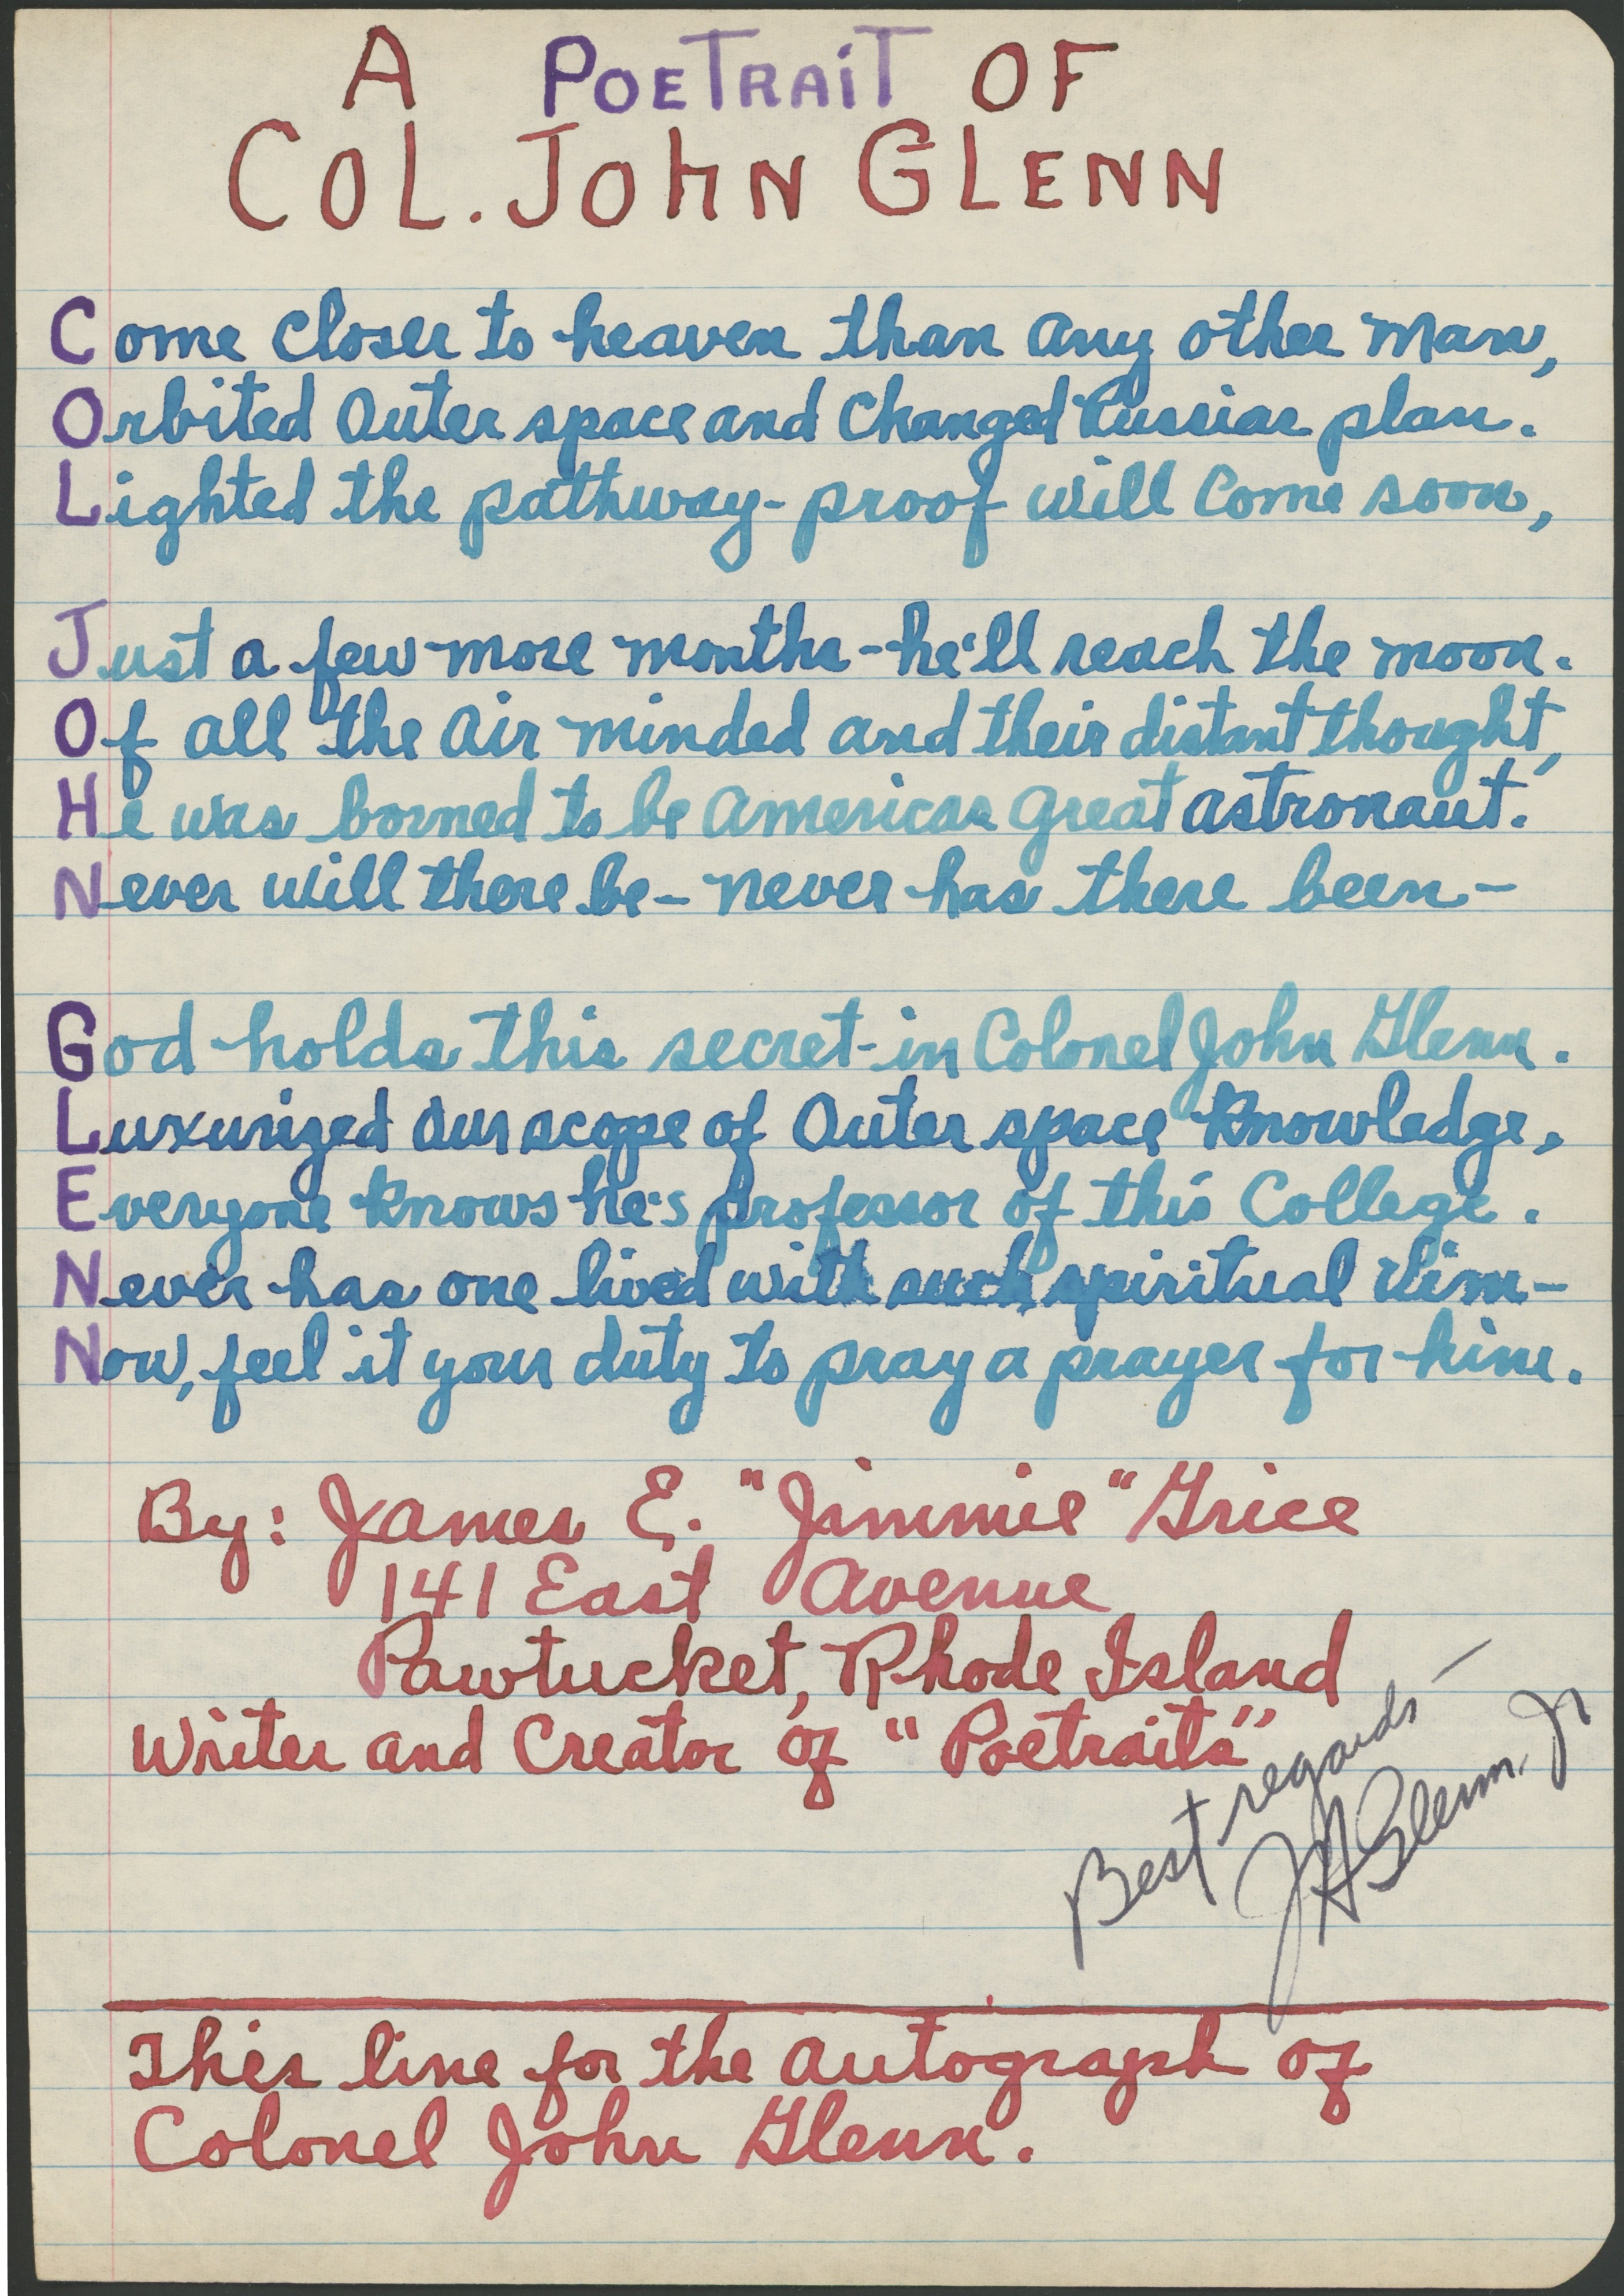 A POETRAIT OF
COL. JOHN GLENN
Come closer to heaven than any other man,
Orbited Outer space and Changed Russian plan.
Lighted the pathway - proof will Come soon,
Just a few more months - he'll reach the moon.
Of all the air minded and their distant thought,
He was borned to be American great astronaut.
Never will there be - never has there been -
God holds this secret - in Colonel John Glenn.
Luxurized Our scope of Outer space Knowledge,
Everyone Knows he's professor of this College.
Never has one lived with such spiritual vim -
Now, feel it your duty to pray a prayer for him.
By: James E. "Jimmie" Grice
141 East Avenue
Pawtucket, Rhode Island
Writer and Creator of "Poetraits"
Best regards -
JH Glenn, Jr
This line for the autograph of
Colonel John Glenn.